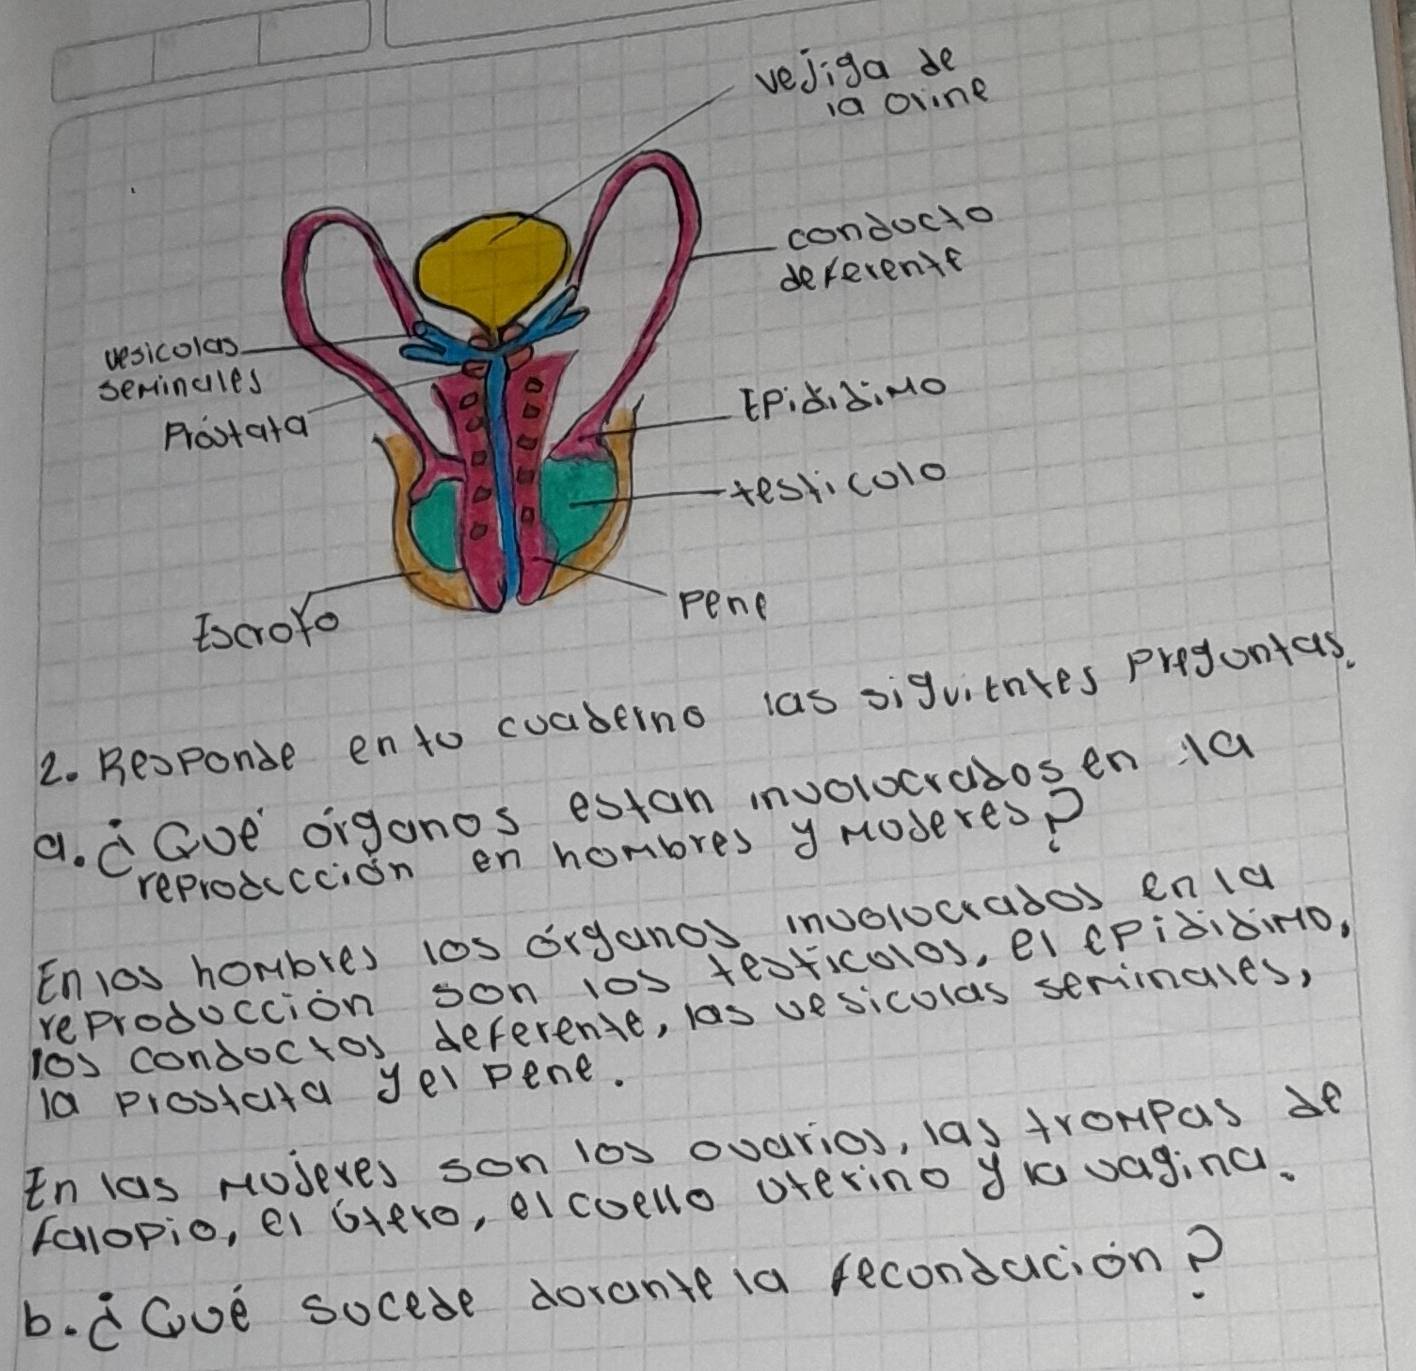 vejiga de
la orine
conducto
deferente
vesiculas
seminales
Próstata
Epididimo
testiculo
Escroto
Pene
2. Responde en tu cuaderno las siguientes preguntas.
a. ¿Qué órganos estan involucrados en la
reproducción en hombres y mujeres?
En los hombres los órganos involucrados en la
reproducción son los testiculos, el epididimo,
los conductos deferente, las vesiculas seminales,
la prostata y el pene.
En las mujeres son los ovarios, las trompas de
falopio, el útero, el cuello uterino y la vagina.
b. ¿Qué sucede durante la fecundación?